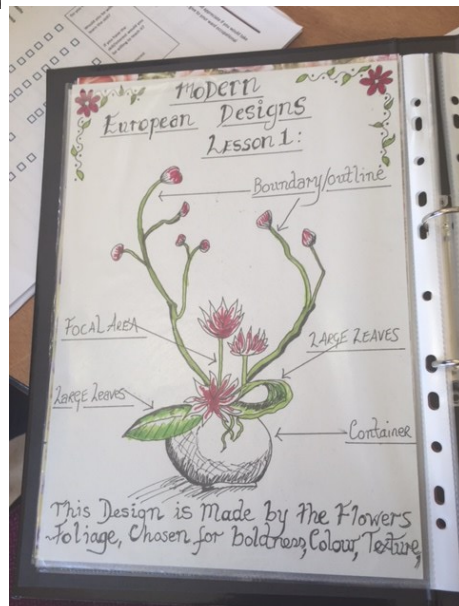 Modern
European Designs
Lesson 1:
Boundary/outline
Focal Area
Large Leaves
Large Leaves
Container
This Design is Made by the Flowers
Foliage, Chosen for boldness, Colour, Texture,